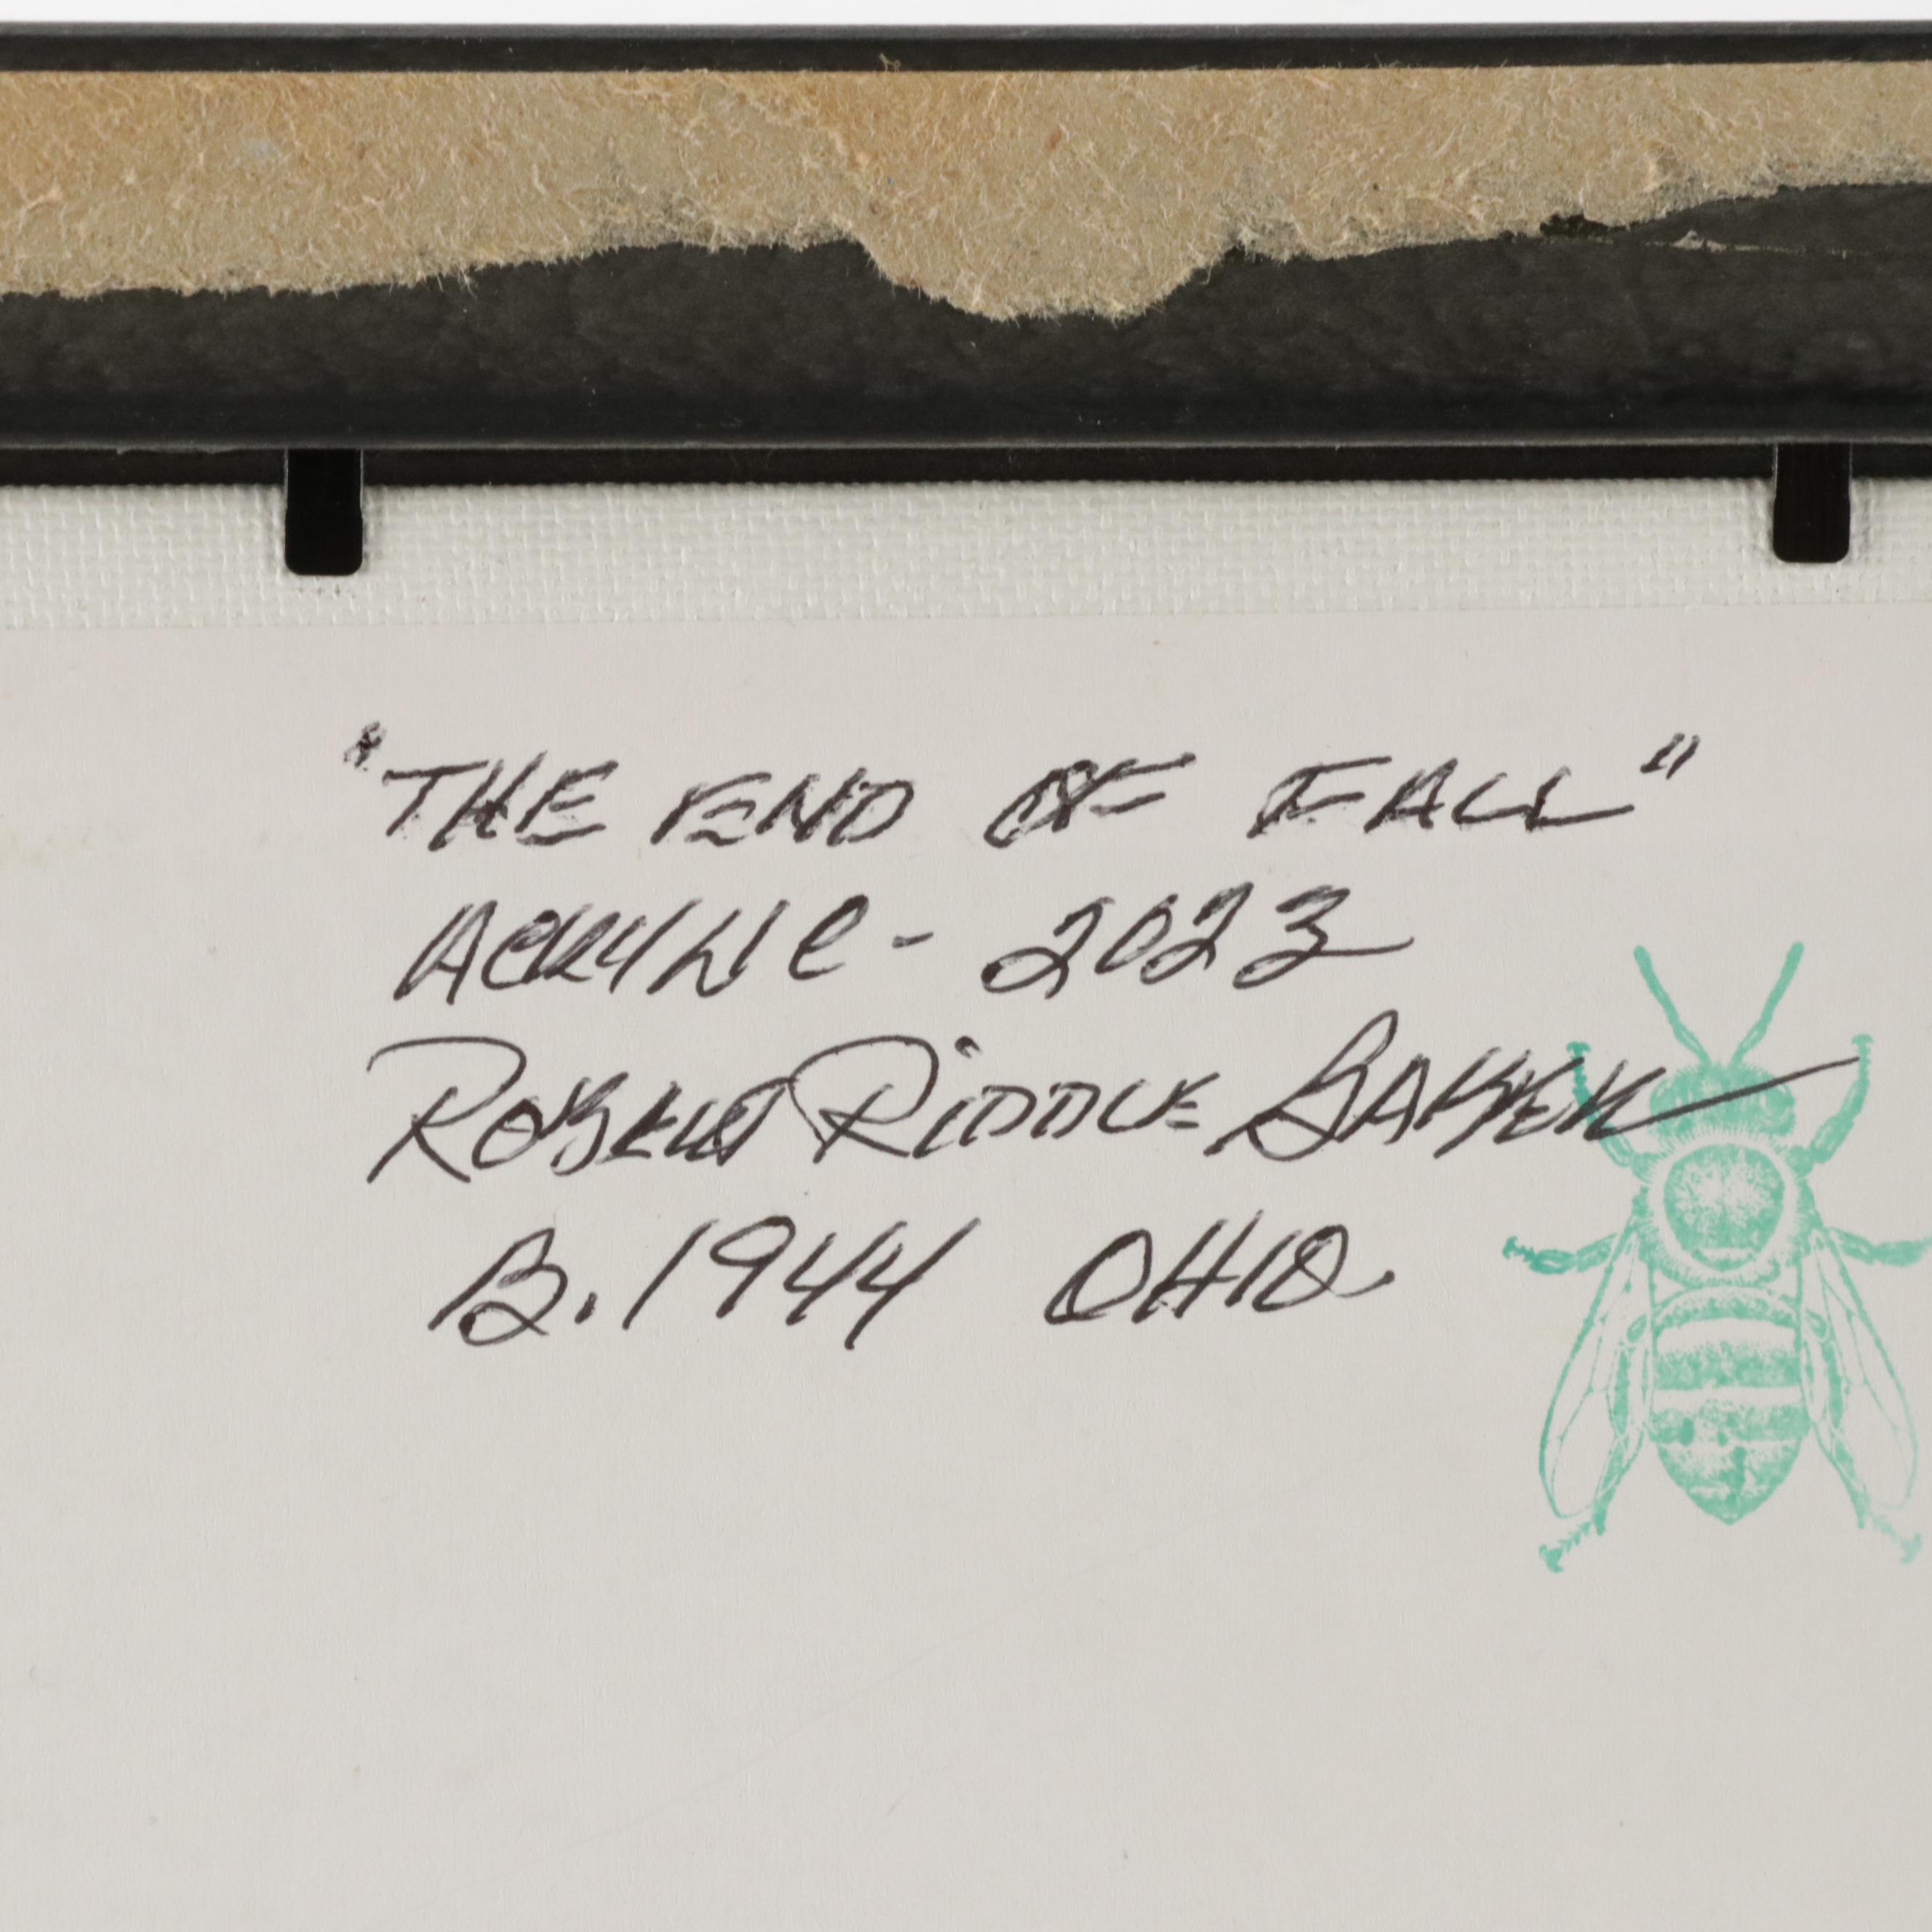 "THE END OF FALL"
ACRYLIC - 2023
ROBERT RIDDLE BAKER
B. 1944 OHIO